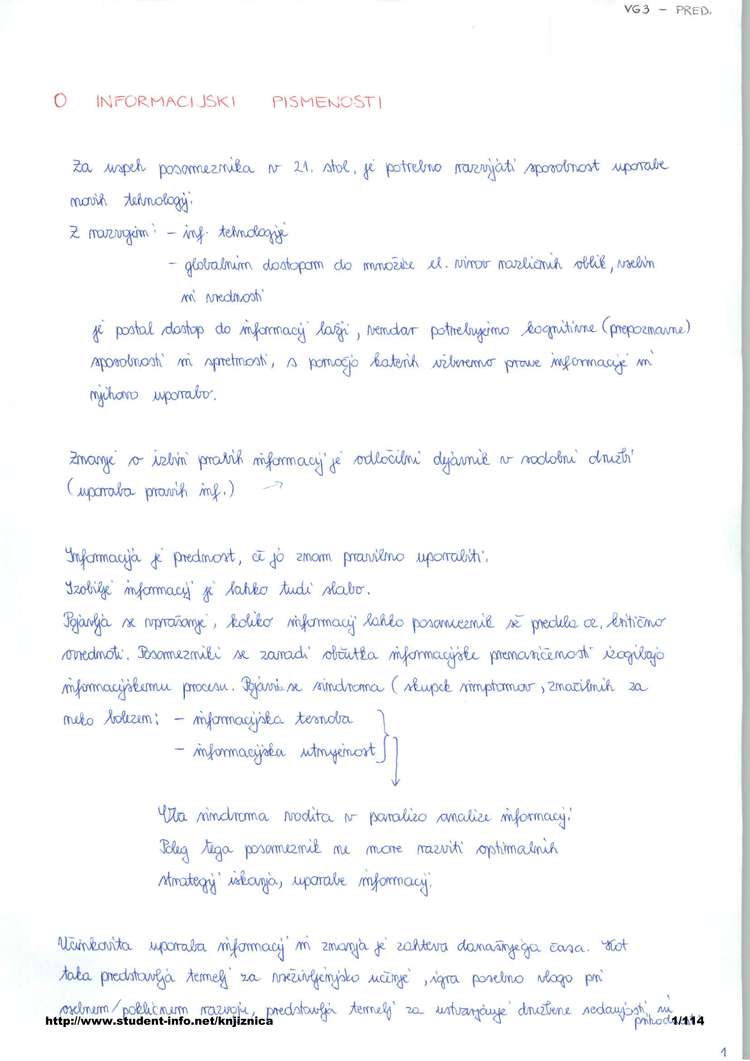 VG3 - PRED.
O INFORMACIJSKI PISMENOSTI
Za uspeh posameznika v 21. stol. je potrebno razvijati sposobnost uporabe
novih tehnologij.
Z razvojem: - inf. tehnologije
- globalnim dostopom do množice el. virov različnih oblik, vsebin
in vrednosti
je postal dostop do informacij lažji, vendar potrebujemo kognitivne (prepoznavne)
sposobnosti in spretnosti, s pomočjo katerih izberemo prave informacije in
njihovo uporabo.
Znanje o izbiri pravih informacij je odločilni dejavnik v sodobni družbi
(uporaba pravih inf.) →
Informacija je prednost, če jo znam pravilno uporabiti.
Izobilje informacij je lahko tudi slabo.
Pojavlja se vprašanje, koliko informacij lahko posameznik še predela oz. kritično
ovrednoti. Posamezniki se zaradi občutka informacijske prenasičenosti izogibajo
informacijskemu procesu. Pojavi se sindroma (skupek simptomov, značilnih za
neko bolezen: - informacijska tesnoba
- informacijska utrujenost
Oba sindroma vodita v paralizo analize informacij.
Poleg tega posameznik ne more razviti optimalnih
strategij iskanja, uporabe informacij.
Učinkovita uporaba informacij in znanja je zahteva današnjega časa. Kot
taka predstavlja temelj za vseživljenjsko učenje, igra posebno vlogo pri
osebnem/pokličnem razvoju, predstavlja temelj za ustvarjanje družbene sedanjosti in
http://www.student-info.net/knjiznica 1/114
1